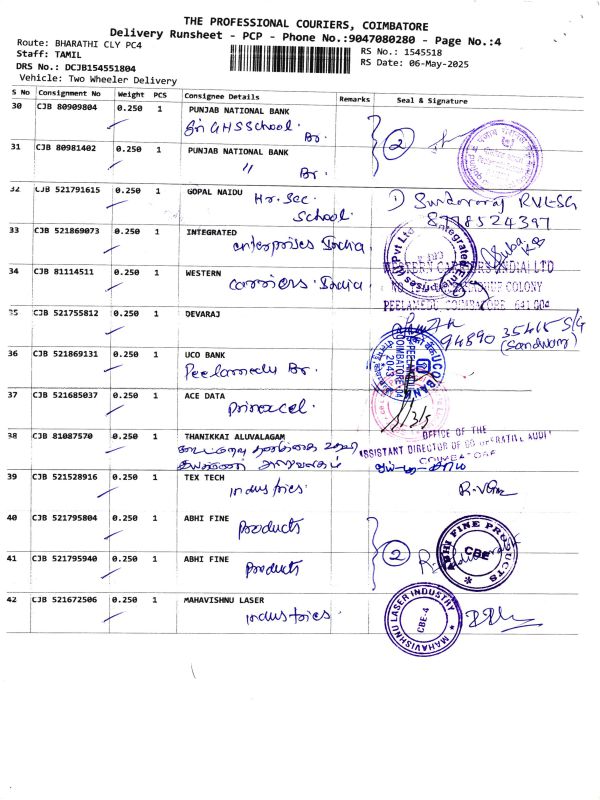 THE PROFESSIONAL COURIERS, COIMBATORE
Delivery Runsheet - PCP - Phone No.:9047080280 - Page No.:4
Route: BHARATHI CLY PC4
Staff: TAMIL
DRS No.: DCJB154551804
Vehicle: Two Wheeler Delivery
RS No.: 1545518
RS Date: 06-May-2025
S No Consignment No Weight PCS Consignee Details Remarks Seal & Signature
30 CJB 80909804 0.250 1 PUNJAB NATIONAL BANK
Sri GHSSchool. Br.
2
31 CJB 80981402 0.250 1 PUNJAB NATIONAL BANK
" Br.
32 CJB 521791615 0.250 1 GOPAL NAIDU Hr. Sec.
School.
8778524397
33 CJB 521869073 0.250 1 INTEGRATED
enterprises India.
Integrated Enterprises Pvt Ltd
34 CJB 81114511 0.250 1 WESTERN
carriers India.
WESTERN CARRIERS (INDIA) LTD
COLONY
PEELAMEDU, COIMBATORE 641 004
35 CJB 521755812 0.250 1 DEVARAJ
94890 35415 S/G
36 CJB 521869131 0.250 1 UCO BANK
Peelamedu Br.
UCO BANK
PEELAMEDU
COIMBATORE-04
2043
37 CJB 521685037 0.250 1 ACE DATA
primacel.
38 CJB 81087570 0.250 1 THANIKKAI ALUVALAGAM
OFFICE OF THE
ASSISTANT DIRECTOR OF CO OPERATIVE AUDIT
COIMBATORE
39 CJB 521528916 0.250 1 TEX TECH
industries.
40 CJB 521795804 0.250 1 ABHI FINE
products
2
ABHI FINE PRODUCTS
CBE
41 CJB 521795940 0.250 1 ABHI FINE
products
42 CJB 521672506 0.250 1 MAHAVISHNU LASER
industries.
MAHAVISHNU LASER INDUSTRY
CBE-4